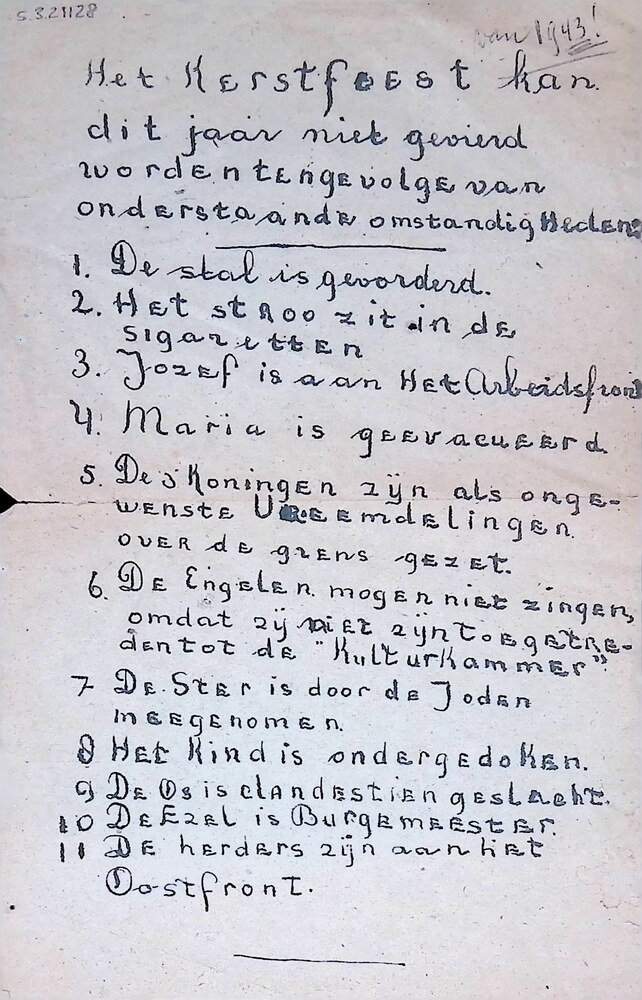 5.3.21128
van 1943!
Het Kerstfeest kan
dit jaar niet gevierd
worden tengevolge van
onderstaande omstandigheden:
1. De stal is gevorderd.
2. Het stroo zit in de
sigaretten
3. Jozef is aan het Arbeidsfront
4. Maria is geevacueerd
5. De 3 Koningen zijn als onge-
wenste Vreemdelingen
over de grens gezet.
6. De Engelen mogen niet zingen,
omdat zij niet zijn toegetre-
den tot de "Kulturkammer".
7 De Ster is door de Joden
meegenomen.
8 Het Kind is ondergedoken.
9 De Os is clandestien geslacht.
10 De Ezel is Burgemeester.
11 De herders zijn aan het
Oostfront.